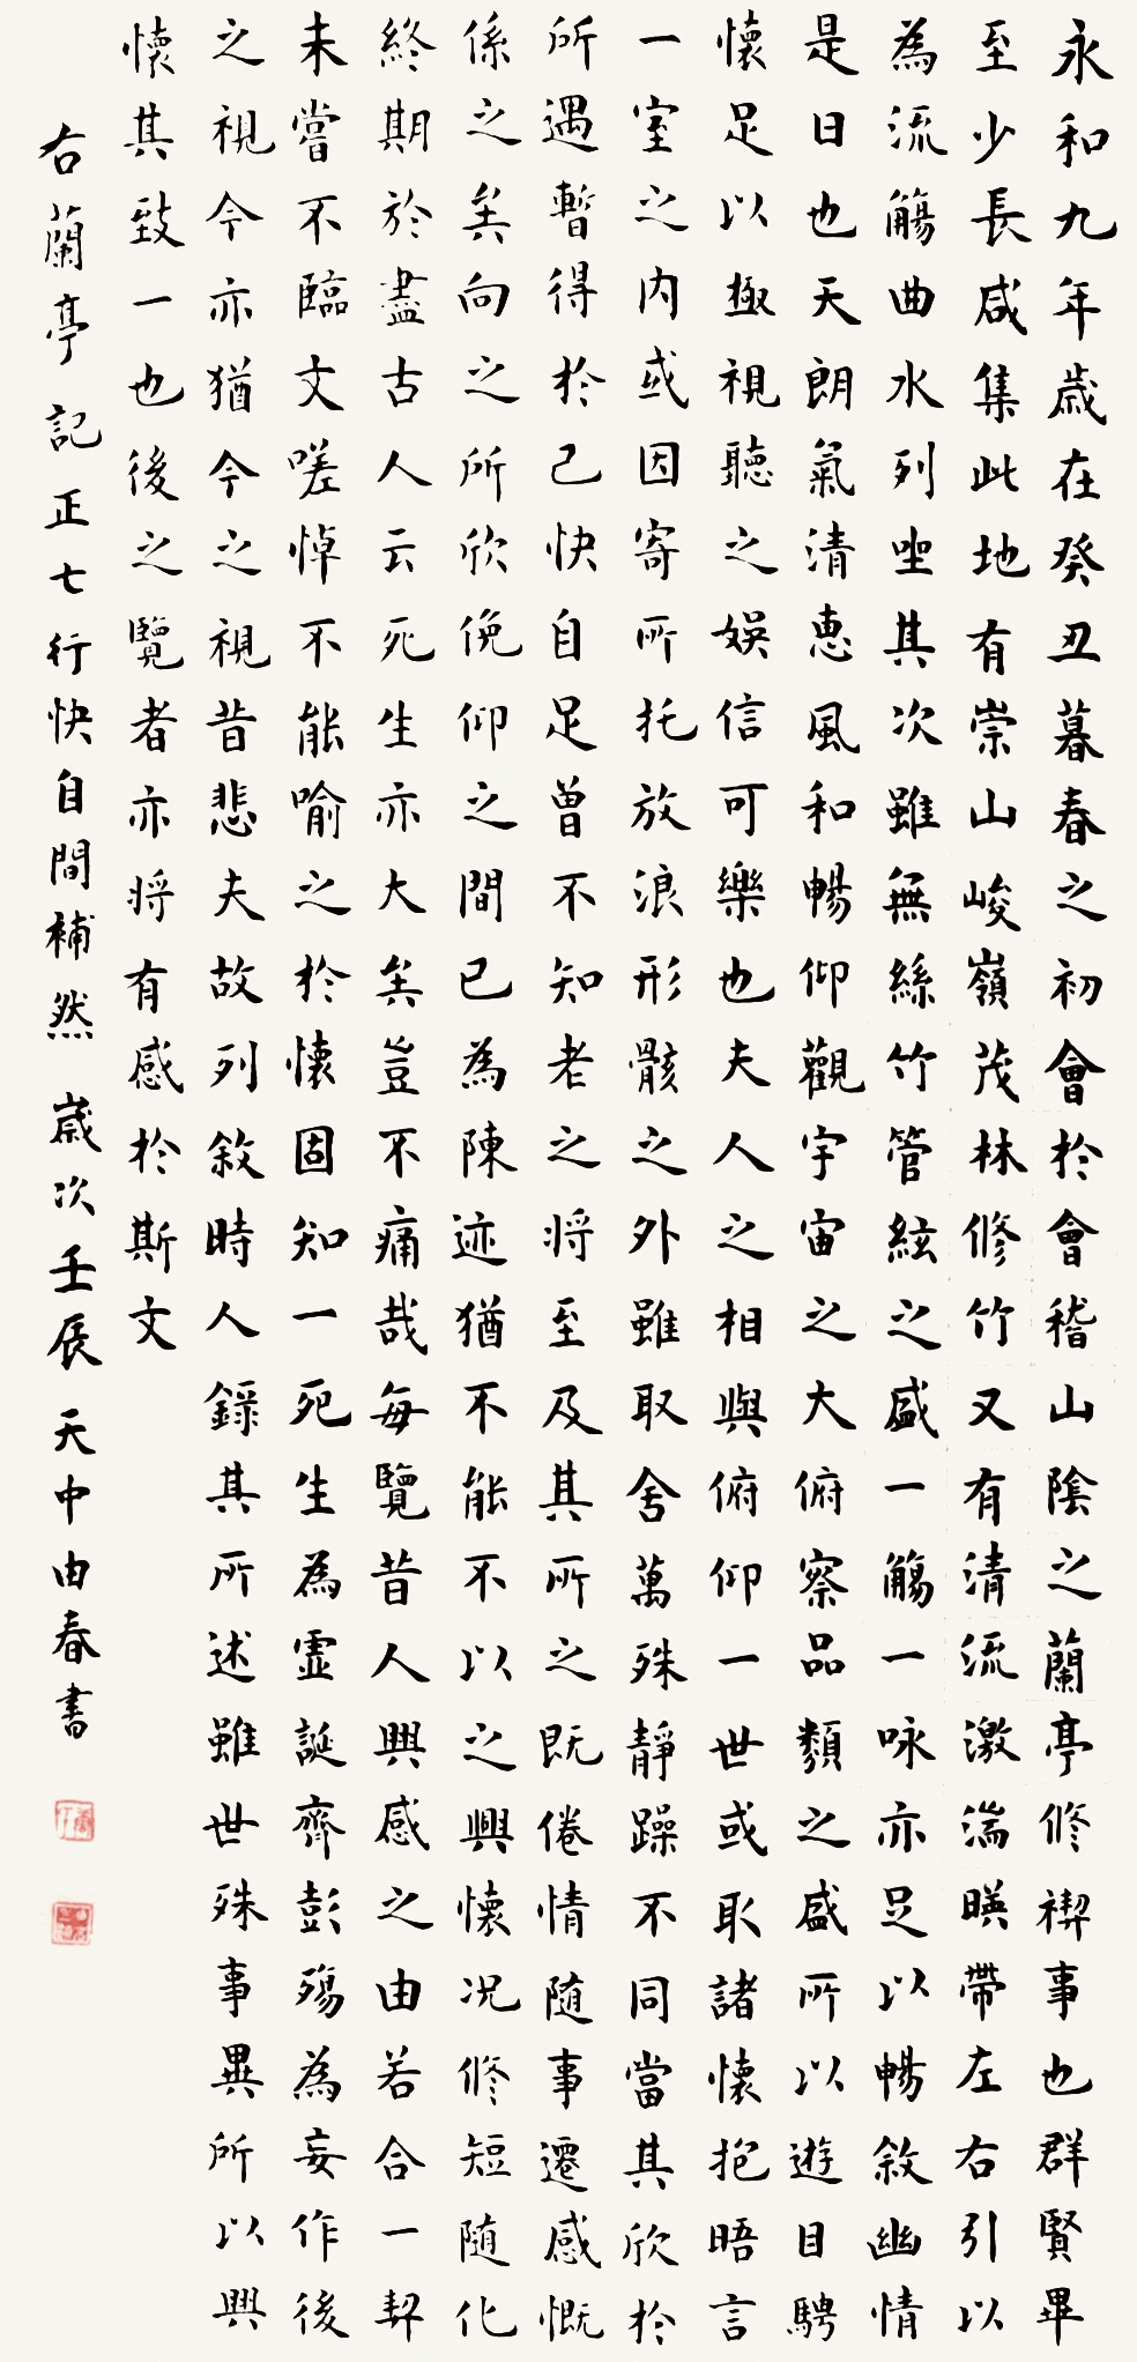 永和九年歲在癸丑暮春之初會於會稽山陰之蘭亭修禊事也群賢畢
至少長咸集此地有崇山峻嶺茂林修竹又有清流激湍暎帶左右引以
為流觴曲水列坐其次雖無絲竹管絃之盛一觴一咏亦足以暢敘幽情
是日也天朗氣清惠風和暢仰觀宇宙之大俯察品類之盛所以遊目騁
懷足以極視聽之娛信可樂也夫人之相與俯仰一世或取諸懷抱晤言
一室之內或因寄所托放浪形骸之外雖取舍萬殊靜躁不同當其欣於
所遇暫得於己快自足曾不知老之將至及其所之既倦情隨事遷感慨
係之矣向之所欣俛仰之間已為陳迹猶不能不以之興懷況修短隨化
終期於盡古人云死生亦大矣豈不痛哉每覽昔人興感之由若合一契
未嘗不臨文嗟悼不能喻之於懷固知一死生為虛誕齊彭殤為妄作後
之視今亦猶今之視昔悲夫故列敘時人錄其所述雖世殊事異所以興
懷其致一也後之覽者亦將有感於斯文
右蘭亭記正七行快自間補然 歲次壬辰天中由春書